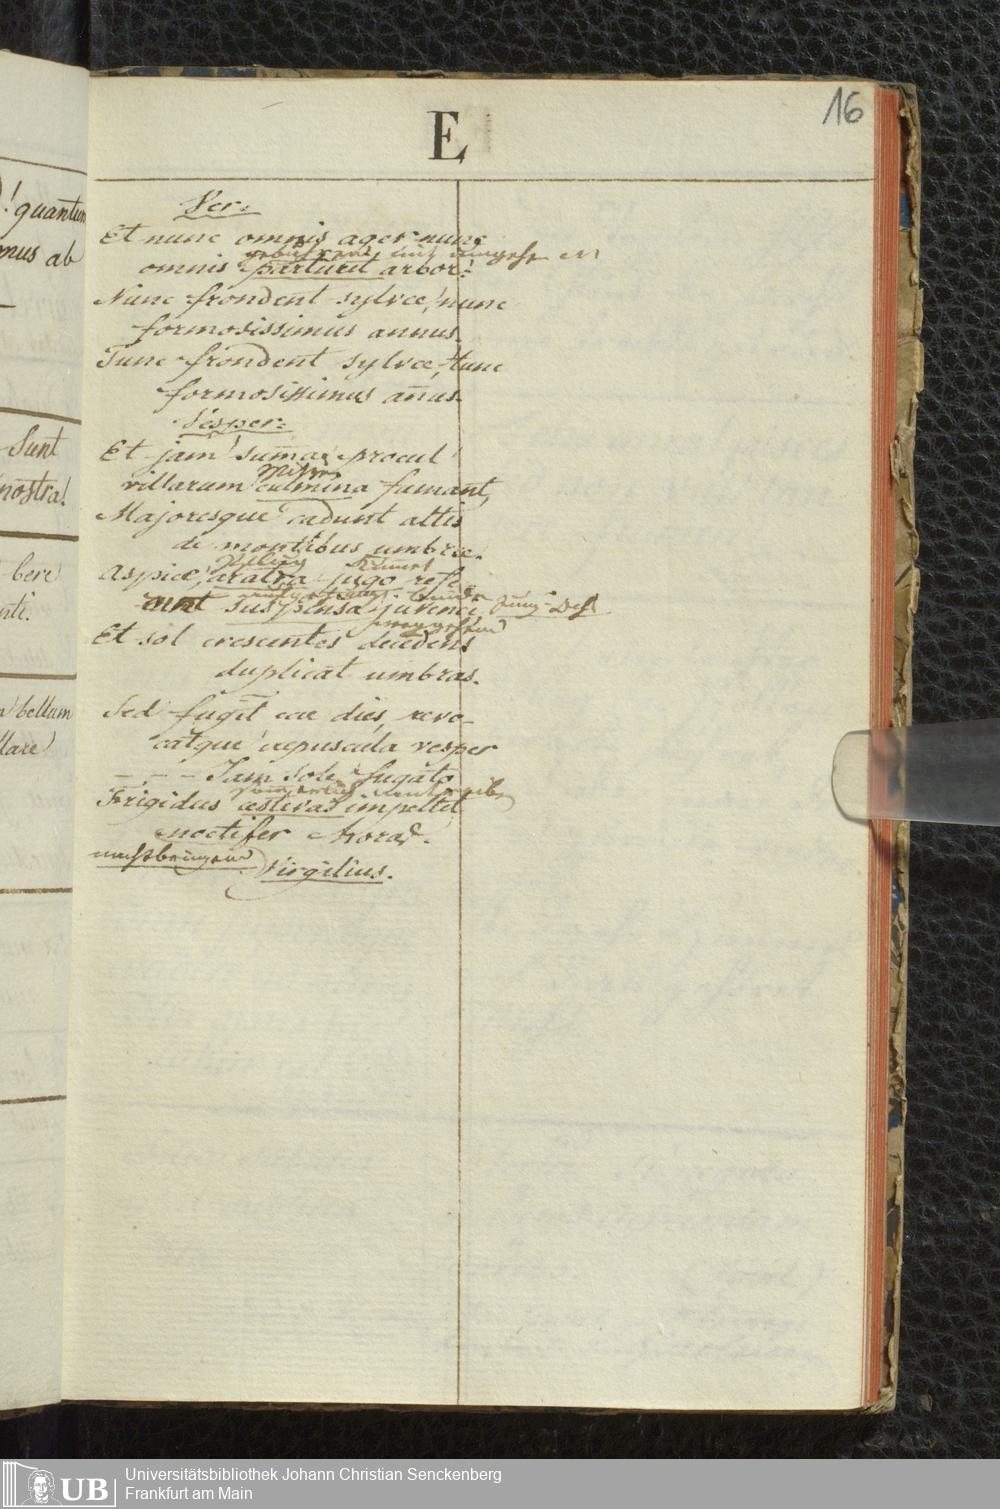 16
E
Ver:
Et nunc omnis ager nunc
omnis parturit arbor:
Nunc frondent sylvæ, nunc
formosissimus annus.
Tunc frondent sylvæ, tunc
formosissimus añus.
Vesper:
Et jam sum̃a procul
villarum culmina fumant,
Majoresque cadunt altis
de montibus umbræ.
Aspice, aratra jugo refe
runt suspensa juvenci
Et sol crescentes decedens
duplicat umbras.
Sed fugit ecce dies, revo-
catque crepuscula vesper
– – – Jam sole fugato
Frigidus æstivas impellet
noctifer horas.
Virgilius.
! quantum
mus ab
Sunt
nostra!
bere
nti.
bellum
lare
UB
Universitätsbibliothek Johann Christian Senckenberg
Frankfurt am Main